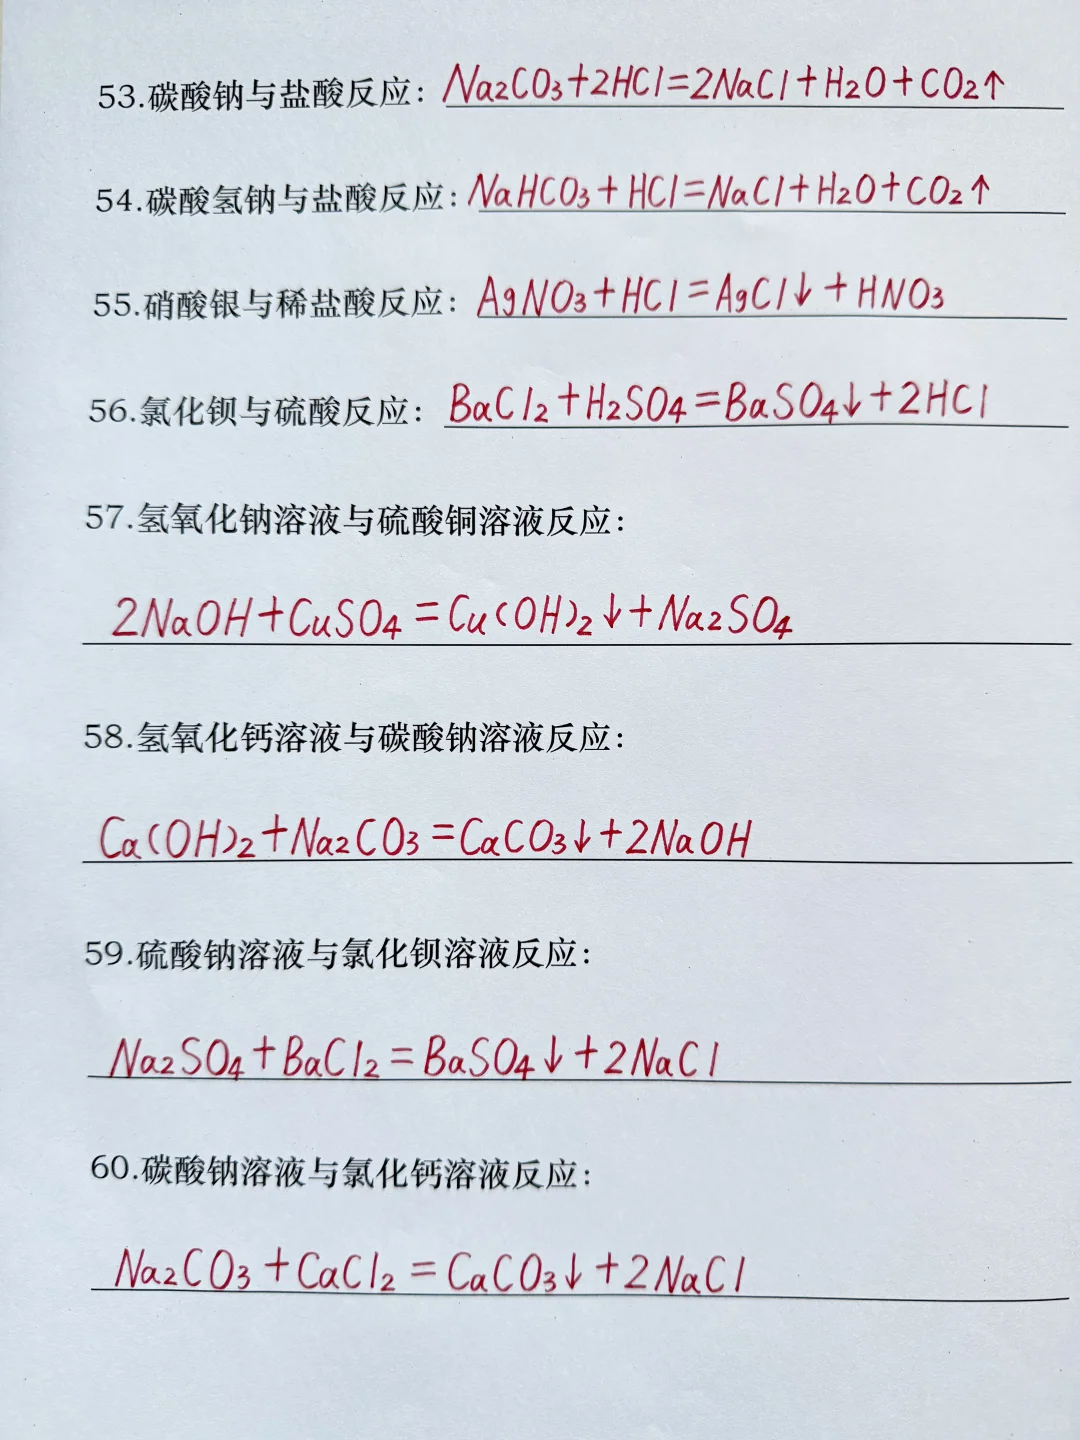 53.碳酸钠与盐酸反应: Na2CO3+2HCl=2NaCl+H2O+CO2↑
54.碳酸氢钠与盐酸反应: NaHCO3+HCl=NaCl+H2O+CO2↑
55.硝酸银与稀盐酸反应: AgNO3+HCl=AgCl↓+HNO3
56.氯化钡与硫酸反应: BaCl2+H2SO4=BaSO4↓+2HCl
57.氢氧化钠溶液与硫酸铜溶液反应:
2NaOH+CuSO4=Cu(OH)2↓+Na2SO4
58.氢氧化钙溶液与碳酸钠溶液反应:
Ca(OH)2+Na2CO3=CaCO3↓+2NaOH
59.硫酸钠溶液与氯化钡溶液反应:
Na2SO4+BaCl2=BaSO4↓+2NaCl
60.碳酸钠溶液与氯化钙溶液反应:
Na2CO3+CaCl2=CaCO3↓+2NaCl